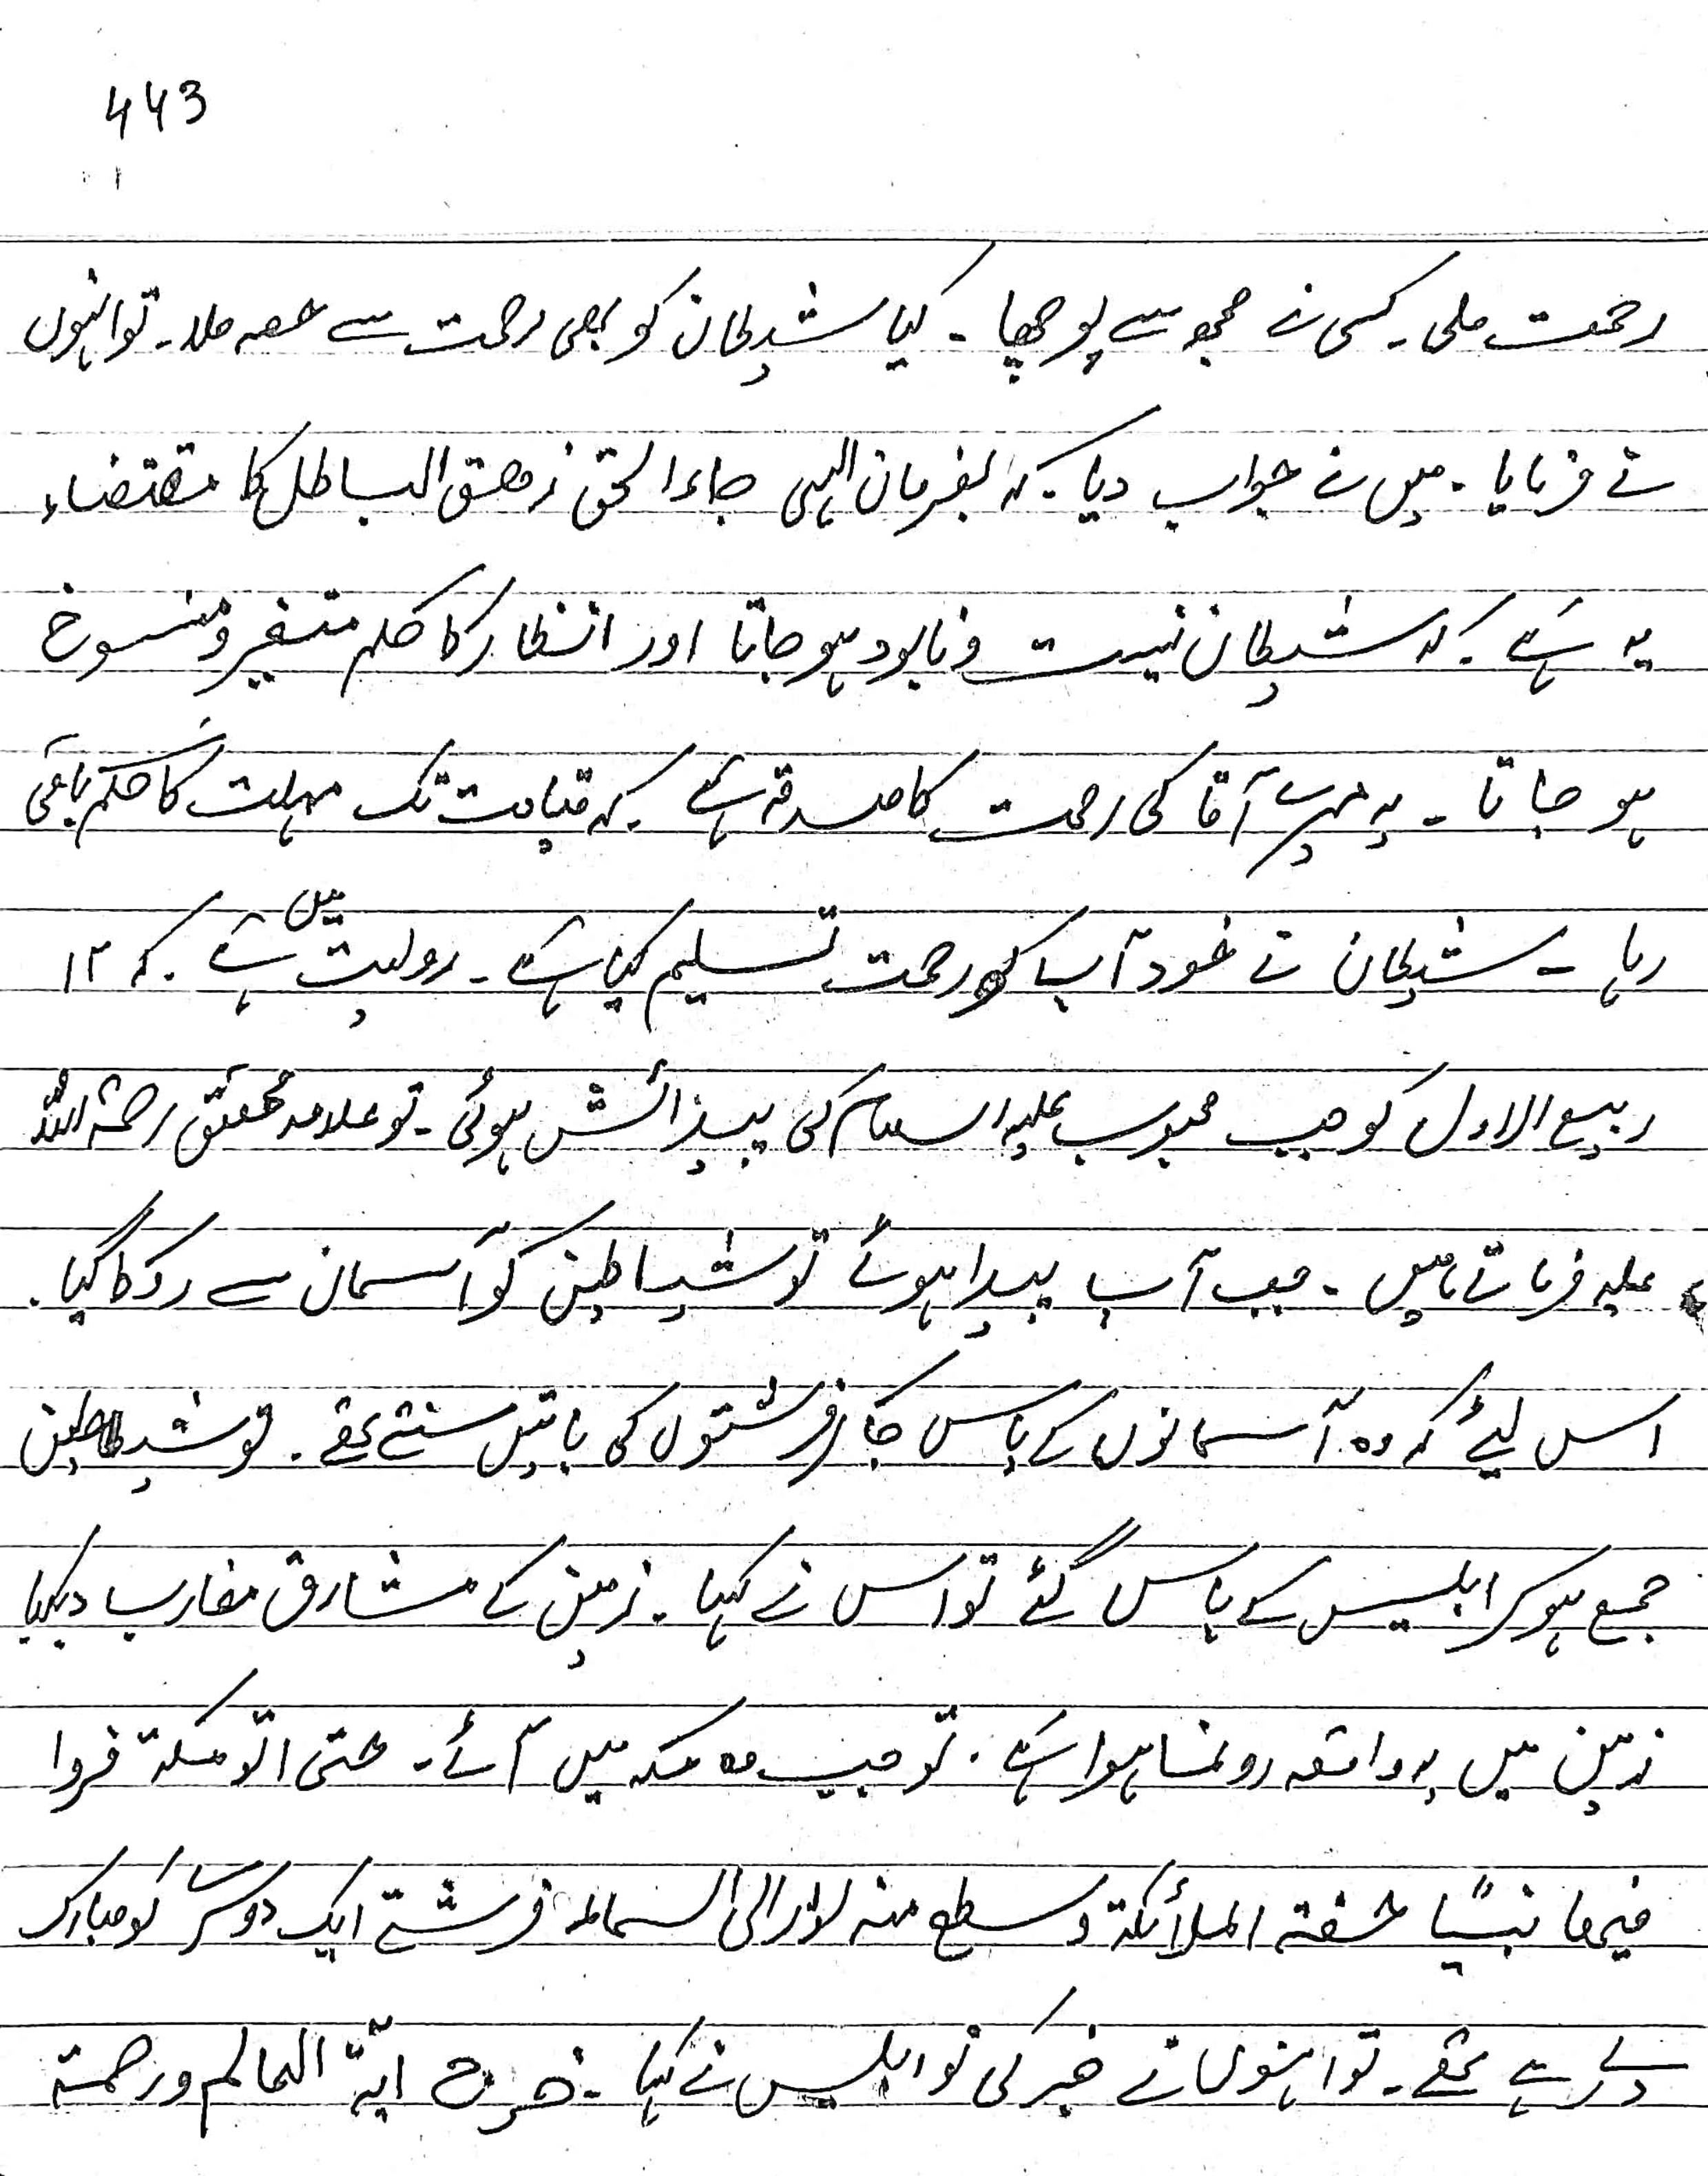 443
رحمت ملی۔ کسی نے مجھ سے پوچھا۔ کیا شیطان کو بھی رحمت سے حصہ ملا۔ تو انہوں
نے فرمایا۔ میں نے جواب دیا۔ کہ بفرمان الہی جاء الحق زھق الباطل کا مقتضاء
یہ ہے۔ کہ شیطان نیست و نابود ہو جاتا اور انظار کا حکم متغیر و منسوخ
ہو جاتا۔ یہ میرے آقا کی رحمت کا صدقہ ہے۔ کہ قیامت تک مہلت کا حکم باقی
رہا۔ شیطان نے خود آپ کو رحمت تسلیم کیا ہے۔ روایت میں ہے۔ کہ ۱۲
ربیع الاول کو جب محبوب علیہ السلام کی پیدائش ہوئی۔ تو علامہ محقق رحمۃ اللہ
علیہ فرماتے ہیں۔ جب آپ پیدا ہوئے تو شیاطین کو آسمان سے روکا گیا۔
اس لیئے کہ وہ آسمانوں کے پاس جا کر فرشتوں کی باتیں سنتے تھے۔ تو شیاطین
جمع ہو کر ابلیس کے پاس گئے تو اس نے کہا۔ زمین کے مشارق مغارب دیکھا
زمین میں یہ واقعہ رونما ہوا ہے۔ تو جب وہ مکہ میں آئے۔ حتی اتو مکۃ فروا
فیھا نبیًا حفتہ الملائکۃ و سطع منہ نور الی السماء فرشتے ایک دوسرے کو مبارک
دے رہے تھے۔ تو انہوں نے خبر کی تو ابلیس نے کہا۔ خرج ایۃ العالم و رحمۃ